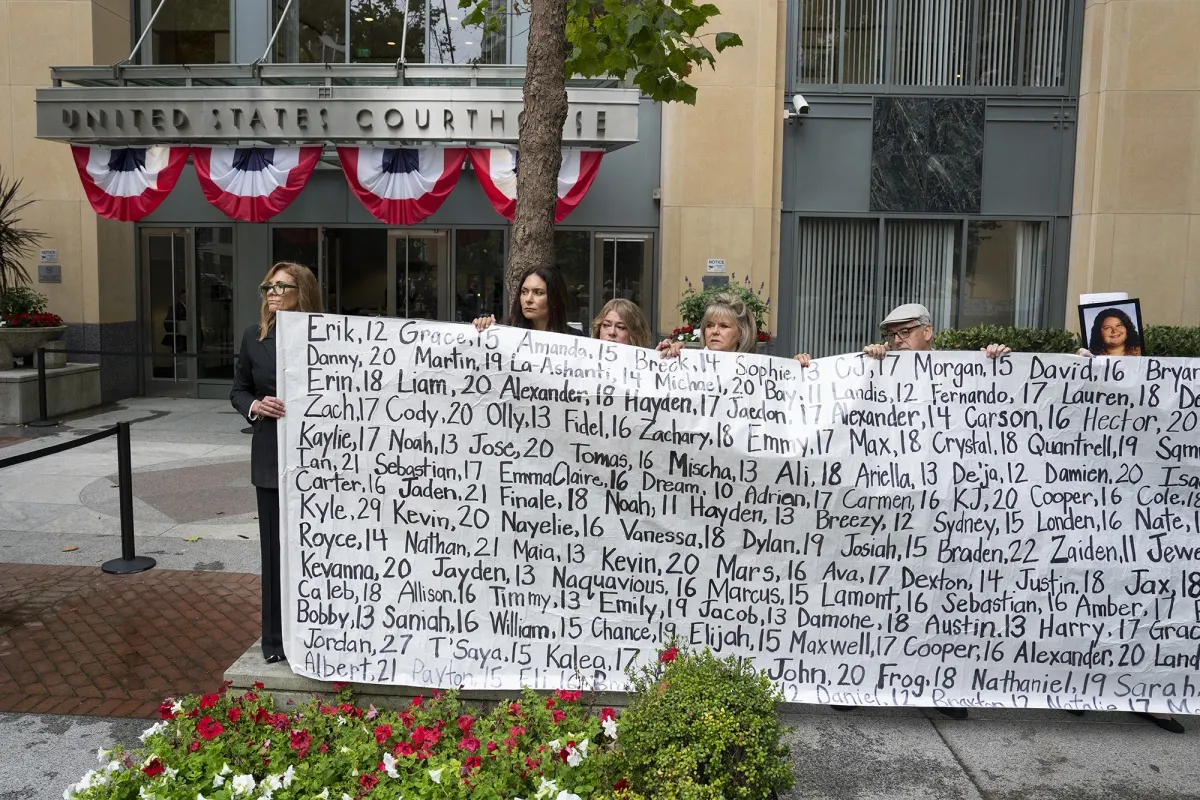 UNITED STATES COURTHOUSE
NOTICE
NOTICE
Erik, 12 Grace, 15 Amanda, 15 Breck, 14 Sophie, 13 CJ, 17 Morgan, 15 David, 16 Bryan
Danny, 20 Martin, 19 La-Ashanti, 14 Michael, 20 Bay, 11 Landis, 12 Fernando, 17 Lauren, 18 De
Erin, 18 Liam, 20 Alexander, 18 Hayden, 17 Jaedon, 17 Alexander, 14 Carson, 16 Hector, 20
Zach, 17 Cody, 20 Olly, 13 Fidel, 16 Zachary, 18 Emmy, 17 Max, 18 Crystal, 18 Quantrell, 19 Sam
Kaylie, 17 Noah, 13 Jose, 20 Tomas, 16 Mischa, 13 Ali, 18 Ariella, 13 De'ja, 12 Damien, 20 Isa
Ian, 21 Sebastian, 17 EmmaClaire, 16 Dream, 10 Adrien, 17 Carmen, 16 KJ, 20 Cooper, 16 Cole,
Carter, 16 Jaden, 21 Finale, 18 Noah, 11 Hayden, 13 Breezy, 12 Sydney, 15 Londen, 16 Nate, 1
Kyle, 29 Kevin, 20 Nayelie, 16 Vanessa, 18 Dylan, 19 Josiah, 15 Braden, 22 Zaiden, 11 Jewe
Royce, 14 Nathan, 21 Maia, 13 Kevin, 20 Mars, 16 Ava, 17 Dexton, 14 Justin, 18 Jax, 18
Kevanna, 20 Jayden, 13 Naquavious, 16 Marcus, 15 Lamont, 16 Sebastian, 16 Amber, 17
Caleb, 18 Allison, 16 Timmy, 13 Emily, 19 Jacob, 13 Damone, 18 Austin, 13 Harry, 17 Grac
Bobby, 13 Saniah, 16 William, 15 Chance, 19 Elijah, 15 Maxwell, 17 Cooper, 16 Alexander, 20 Land
Jordan, 27 T'Saya, 15 Kalea, 17 John, 20 Frog, 18 Nathaniel, 19 Sarah,
Albert, 21 Payton, 15 Eli, 16 12 Daniel, 12 Braxton, 12 Natalie, 17